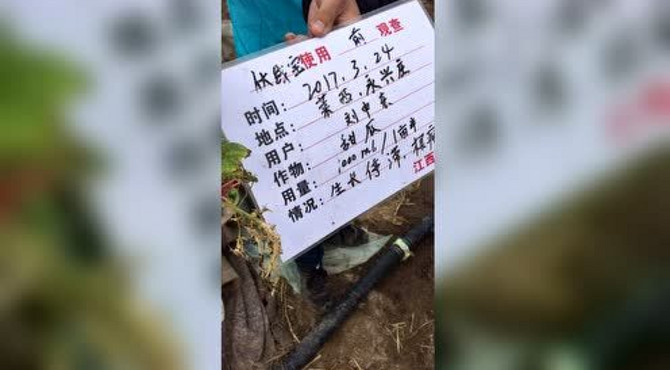 伏线宝使用 前 观查
时间: 2017.3.24
地点: 莱西.永兴庄
用户: 刘中京
作物: 甜瓜
用量: 1000ml/1亩半
情况: 生长停滞,根病
江西